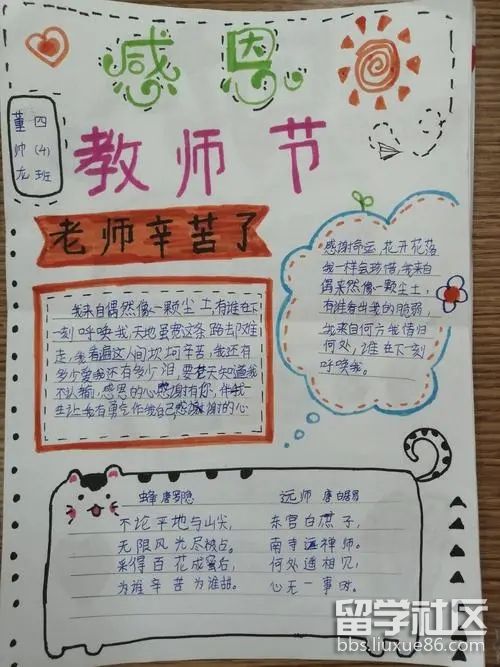 感恩
四(4)班
董帅龙
教师节
老师辛苦了
我来自偶然像一颗尘土,有谁在下
一刻呼唤我,天地虽宽这条路去难
走,我看遍这人间坎坷辛苦,我还有
多少爱我还有多少泪,要苍天知道我
不认输,感恩的心感谢有你,伴我一
生让我有勇气作我自己感谢的心
感谢命运,花开花落
我一样会珍惜,我来自
偶然像一颗尘土,
有谁看出我的脆弱,
我来自何方我情归
何处,谁在下一刻
呼唤我。
蜂 唐罗隐
不论平地与山尖,
无限风光尽被占。
采得百花成蜜后,
为谁辛苦为谁甜。
远师 唐白居易
东宫白庶子,
南寺远禅师。
何处遥相见,
心无一事时。
留学社区
bbs.liuxue86.com